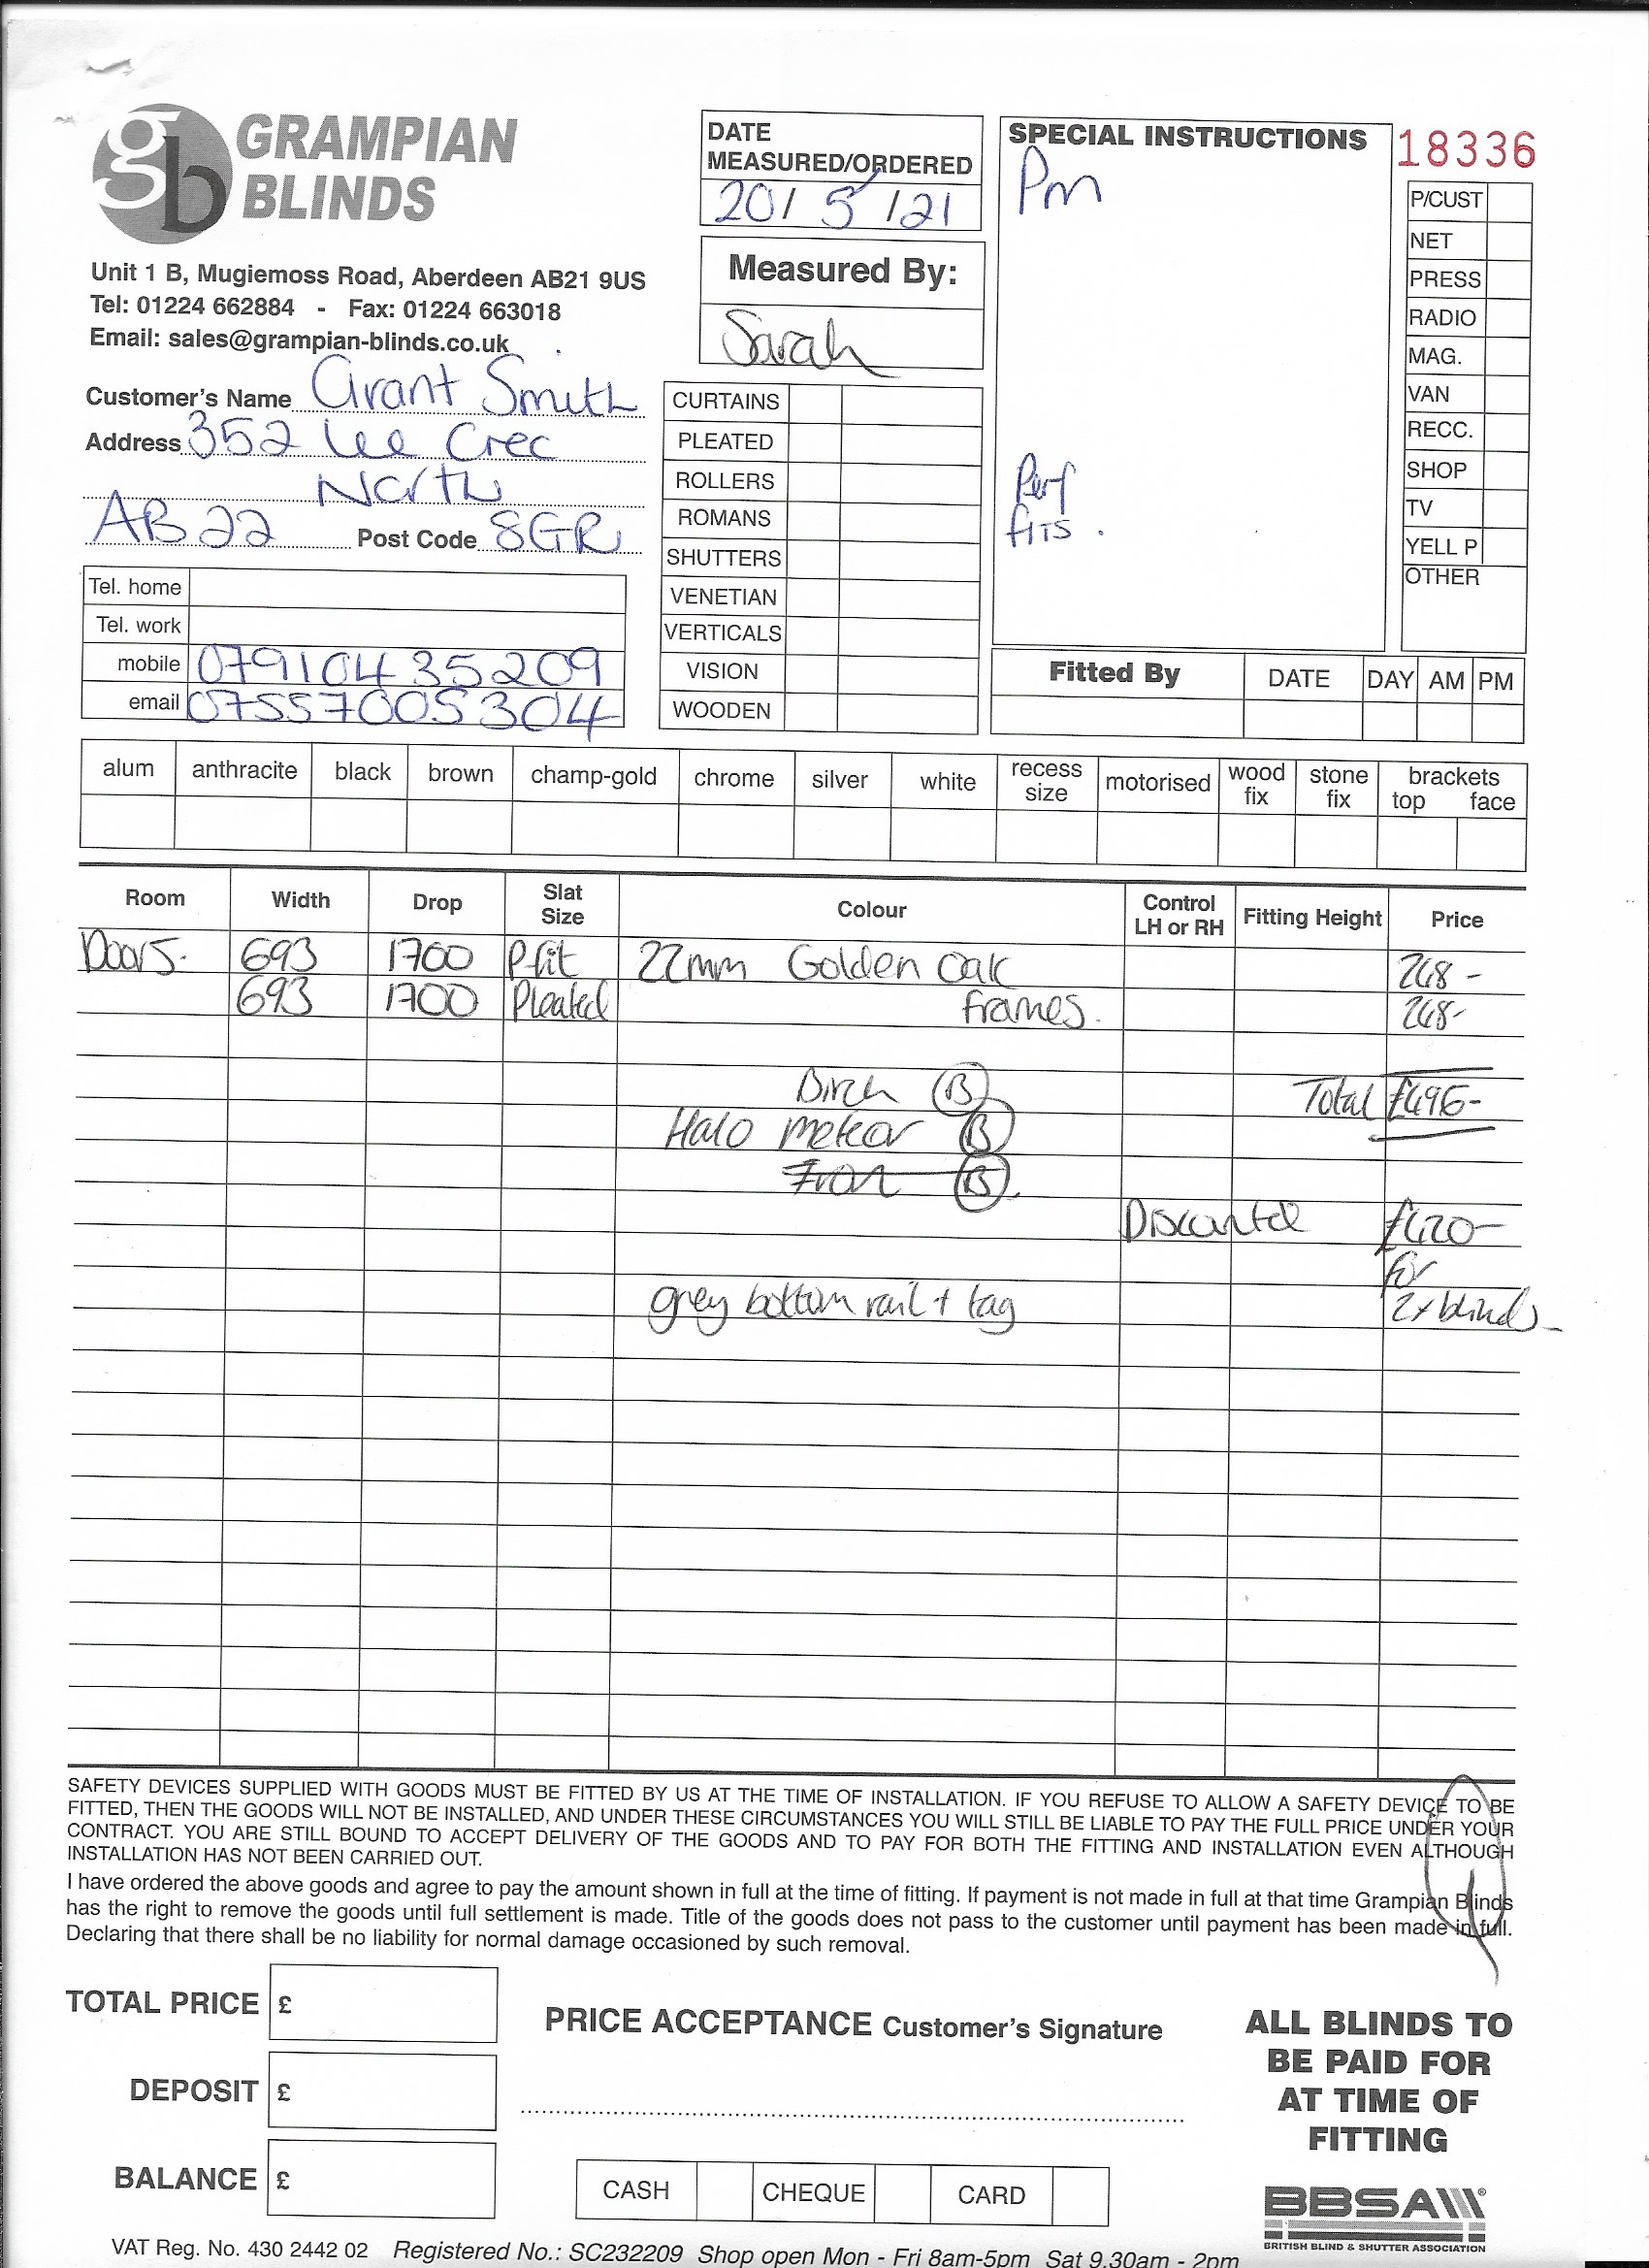 gb GRAMPIAN
BLINDS
Unit 1 B, Mugiemoss Road, Aberdeen AB21 9US
Tel: 01224 662884 - Fax: 01224 663018
Email: sales@grampian-blinds.co.uk
Customer's Name Grant Smith
Address 352 Lee Cres
North
AB22 Post Code 8GR
Tel. home
Tel. work
mobile 07910435209
email 07557005304
DATE
MEASURED/ORDERED
20/5/21
Measured By:
Sarah
CURTAINS
PLEATED
ROLLERS
ROMANS
SHUTTERS
VENETIAN
VERTICALS
VISION
WOODEN
SPECIAL INSTRUCTIONS
Pm
Perf
fits.
18336
P/CUST
NET
PRESS
RADIO
MAG.
VAN
RECC.
SHOP
TV
YELL P
OTHER
Fitted By DATE DAY AM PM
alum anthracite black brown champ-gold chrome silver white recess size motorised wood fix stone fix brackets top face
Room Width Drop Slat Size Colour Control LH or RH Fitting Height Price
Doors. 693 1700 Pfit 22mm Golden Oak 248-
693 1700 Pleated frames. 248-
Birch (B) Total £496-
Halo meteor (B)
(B).
Discounted £420-
for
grey bottom rail + tag 2x blinds-
SAFETY DEVICES SUPPLIED WITH GOODS MUST BE FITTED BY US AT THE TIME OF INSTALLATION. IF YOU REFUSE TO ALLOW A SAFETY DEVICE TO BE
FITTED, THEN THE GOODS WILL NOT BE INSTALLED, AND UNDER THESE CIRCUMSTANCES YOU WILL STILL BE LIABLE TO PAY THE FULL PRICE UNDER YOUR
CONTRACT. YOU ARE STILL BOUND TO ACCEPT DELIVERY OF THE GOODS AND TO PAY FOR BOTH THE FITTING AND INSTALLATION EVEN ALTHOUGH
INSTALLATION HAS NOT BEEN CARRIED OUT.
I have ordered the above goods and agree to pay the amount shown in full at the time of fitting. If payment is not made in full at that time Grampian Blinds
has the right to remove the goods until full settlement is made. Title of the goods does not pass to the customer until payment has been made in full.
Declaring that there shall be no liability for normal damage occasioned by such removal.
TOTAL PRICE £
DEPOSIT £
BALANCE £
PRICE ACCEPTANCE Customer's Signature
CASH CHEQUE CARD
ALL BLINDS TO
BE PAID FOR
AT TIME OF
FITTING
BBSA
BRITISH BLIND & SHUTTER ASSOCIATION
VAT Reg. No. 430 2442 02 Registered No.: SC232209 Shop open Mon - Fri 8am-5pm Sat 9.30am - 2pm